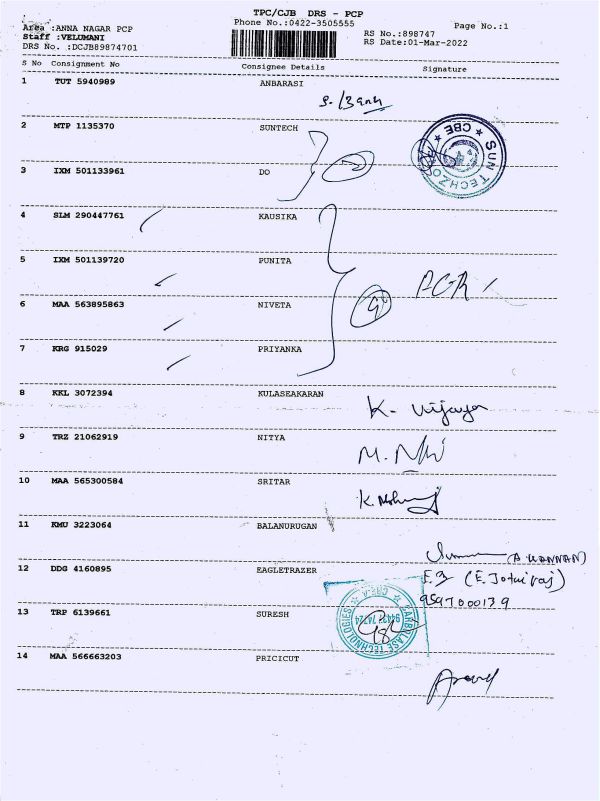 TPC/CJB DRS - PCP
Area :ANNA NAGAR PCP Phone No.:0422-3505555 Page No.:1
Staff :VELUMANI RS No.:898747
DRS No. :DCJB89874701 RS Date:01-Mar-2022
S No Consignment No Consignee Details Signature
1 TUT 5940989 ANBARASI
2 MTP 1135370 SUNTECH
SUN TECHZO ★ CBE ★
3 IXM 501133961 DO
4 SLM 290447761 KAUSIKA
5 IXM 501139720 PUNITA
6 MAA 563895863 NIVETA
7 KRG 915029 PRIYANKA
8 KKL 3072394 KULASEAKARAN
K. Vijaya
9 TRZ 21062919 NITYA
10 MAA 565300584 SRITAR
11 KMU 3223064 BALANURUGAN
(A. KANNAN)
12 DDG 4160895 EAGLETRAZER
9597000139
13 TRP 6139661 SURESH
TECHNOLOGIES
14 MAA 566663203 PRICICUT